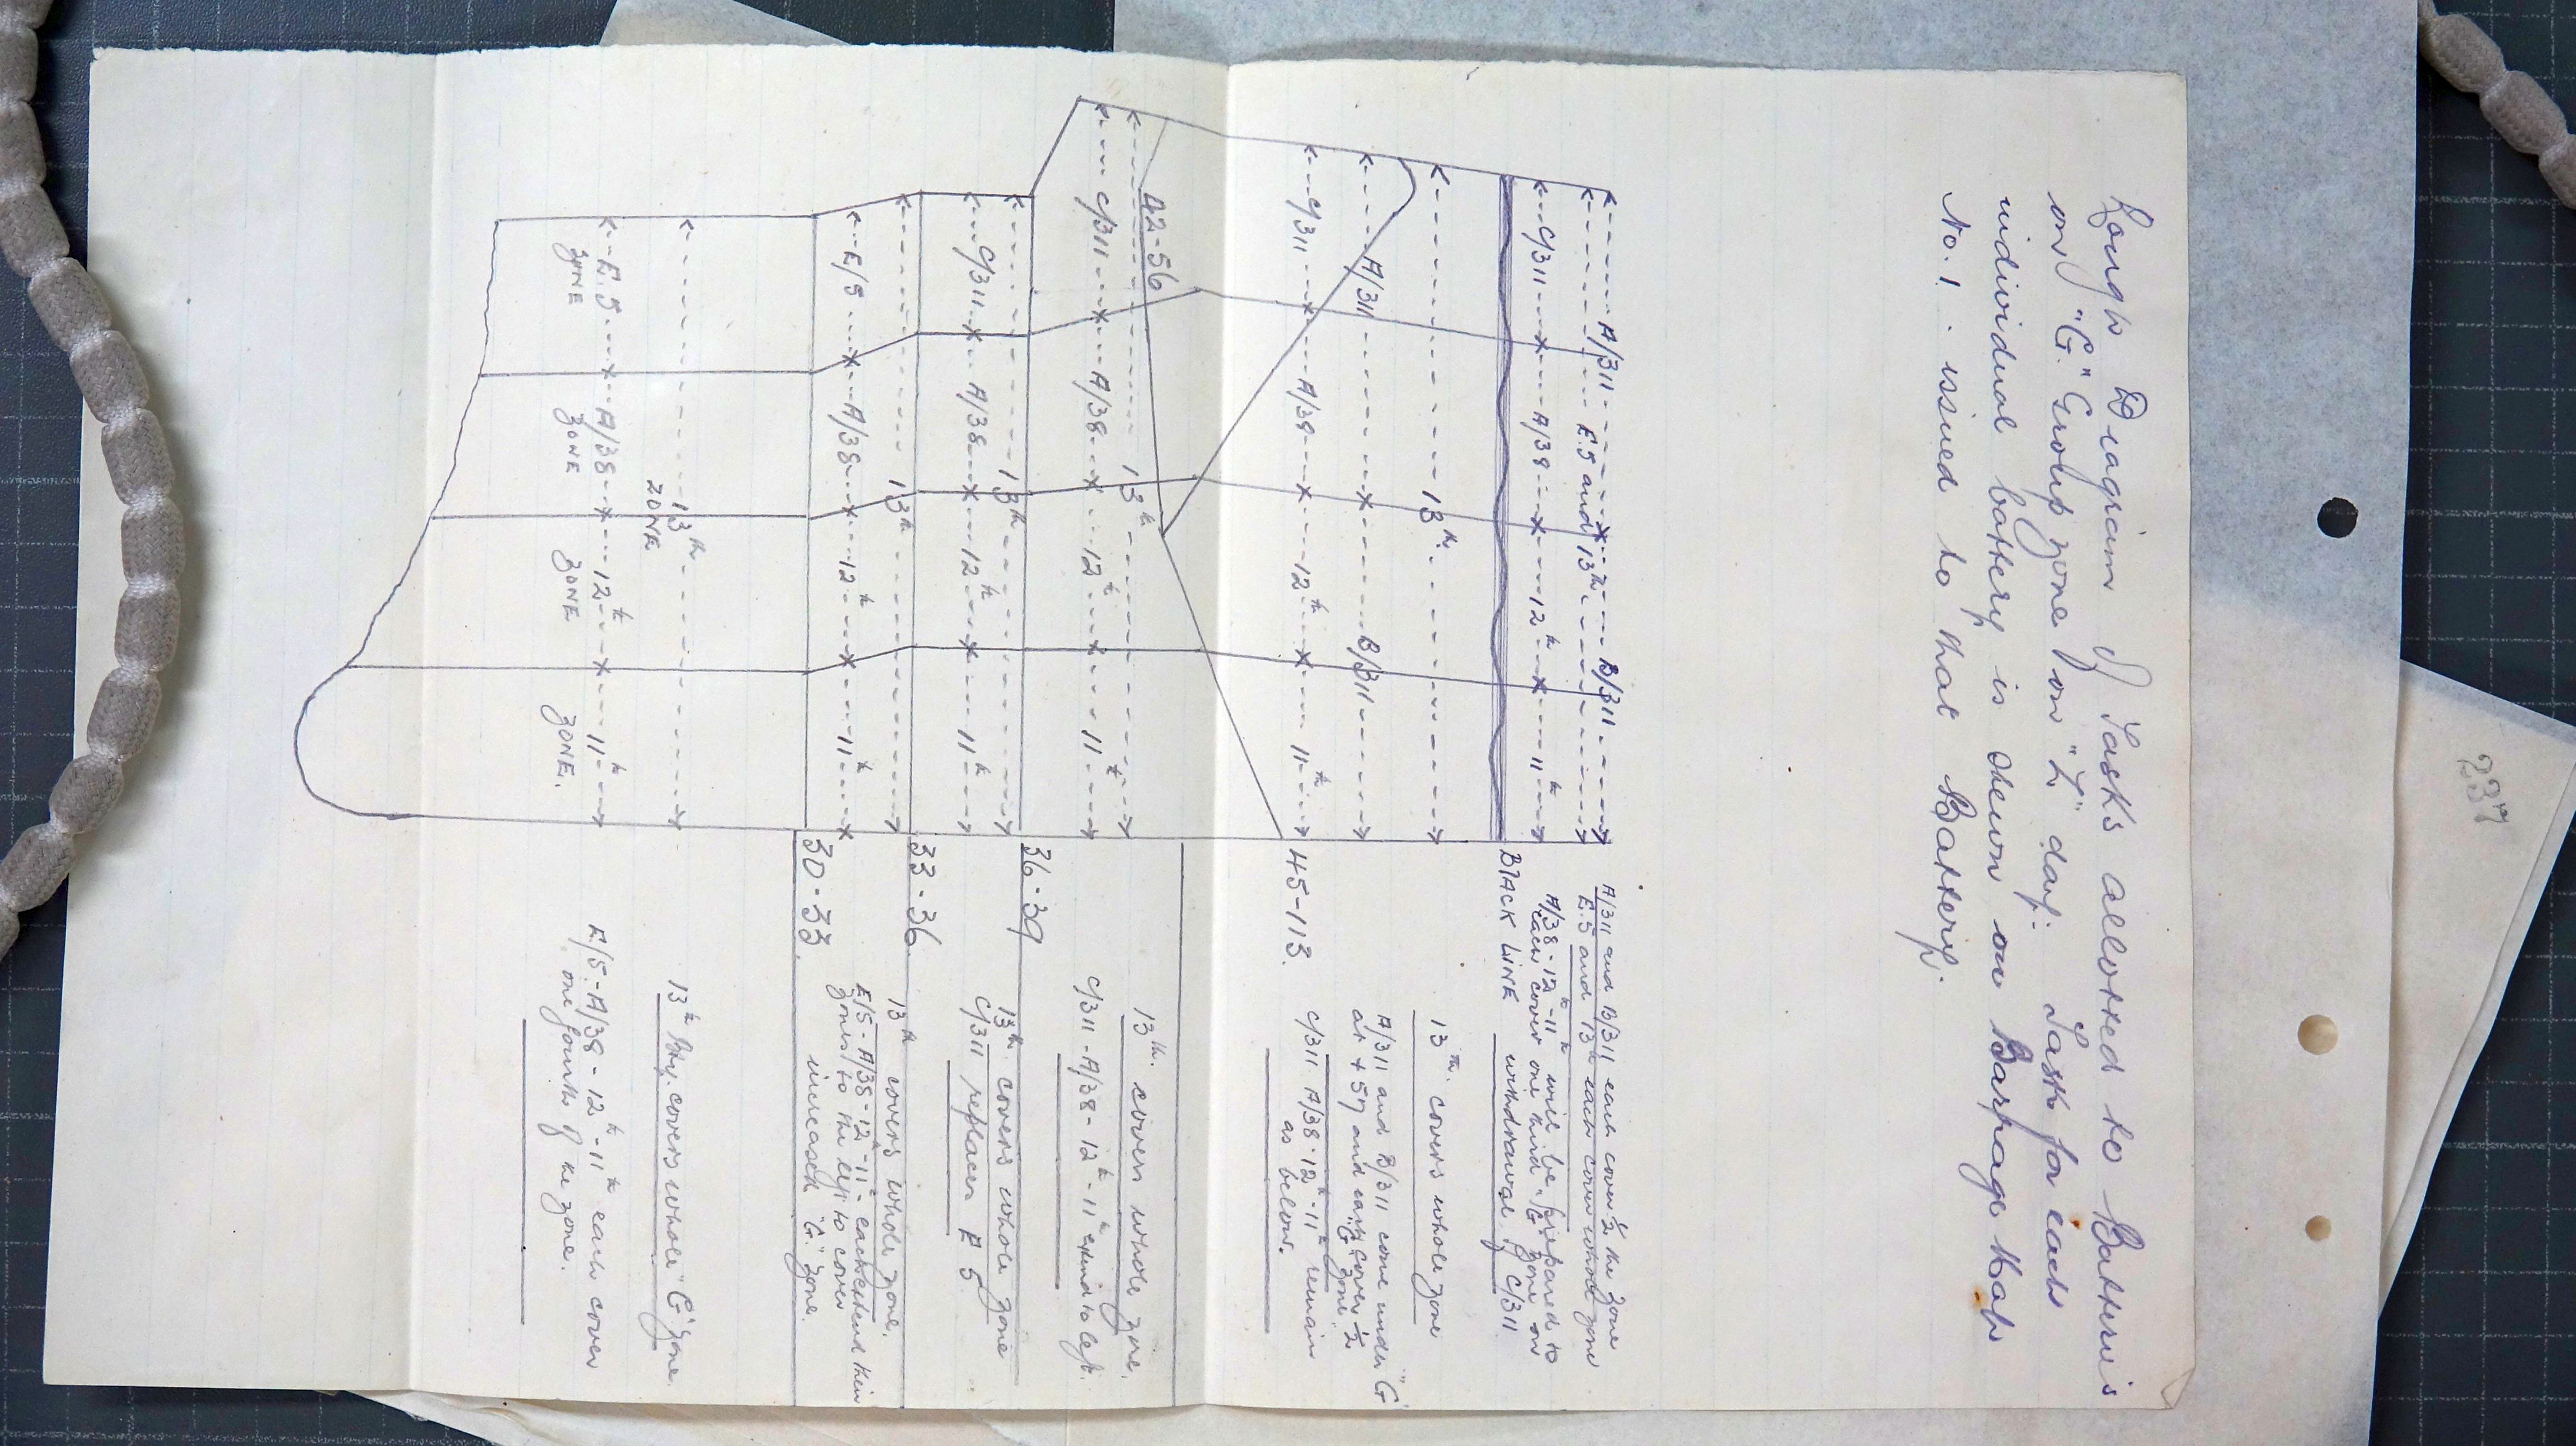 Rough Diagram of Tasks allotted to Batteries
on "G" Group zone on "Z" day. Task for each
individual battery is shewn on Barrage Map
No. 1. issued to that Battery.
237
A/311 B/311
E.5 and 13th
C/311 A/38 12th 11th
A/311 and B/311 each cover ½ the zone
E.5 and 13th each cover whole zone
A/38 - 12th - 11th will be prepared to
each cover one third "G" zone on
BLACK LINE withdrawal of C/311
13th
13th covers whole zone
A/311 B/311
A/311 and B/311 come under "G"
at +57 and each cover ½
"G" zone.
C/311 A/38 12th 11th
45-113.
C/311 A/38-12th-11th remain
as below.
42-56
13th
13th covers whole zone.
C/311 A/38 12th 11th
C/311 - A/38 - 12th - 11th extend to left.
36-39
13th
13th covers whole zone
C/311 A/38 12th 11th
C/311 replaces E 5
33-36
13th
13th covers whole zone.
E/5 A/38 12th 11th
E/5 - A/38 - 12th - 11th each extend their
zones to the left to cover
increased "G" zone.
30-33.
13th
ZONE
13th Bty. covers whole "G" zone.
E.5 A/38 12th 11th
ZONE ZONE ZONE ZONE.
E/5 - A/38 - 12th - 11th each cover
one fourth of the zone.